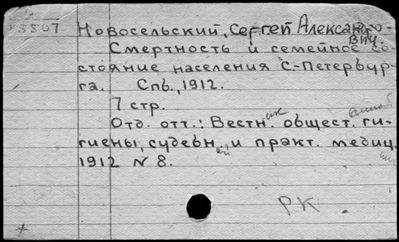 55507 Новосельский, Сергей Александро-
вич.
Смертность и семейное со-
стояние населения С.-Петербур-
га. Спб., 1912.
7 стр.
Отд. отт.: Вестник общест. ги-
гиены, судебней и практ. медиц.
1912 N 8.
РК